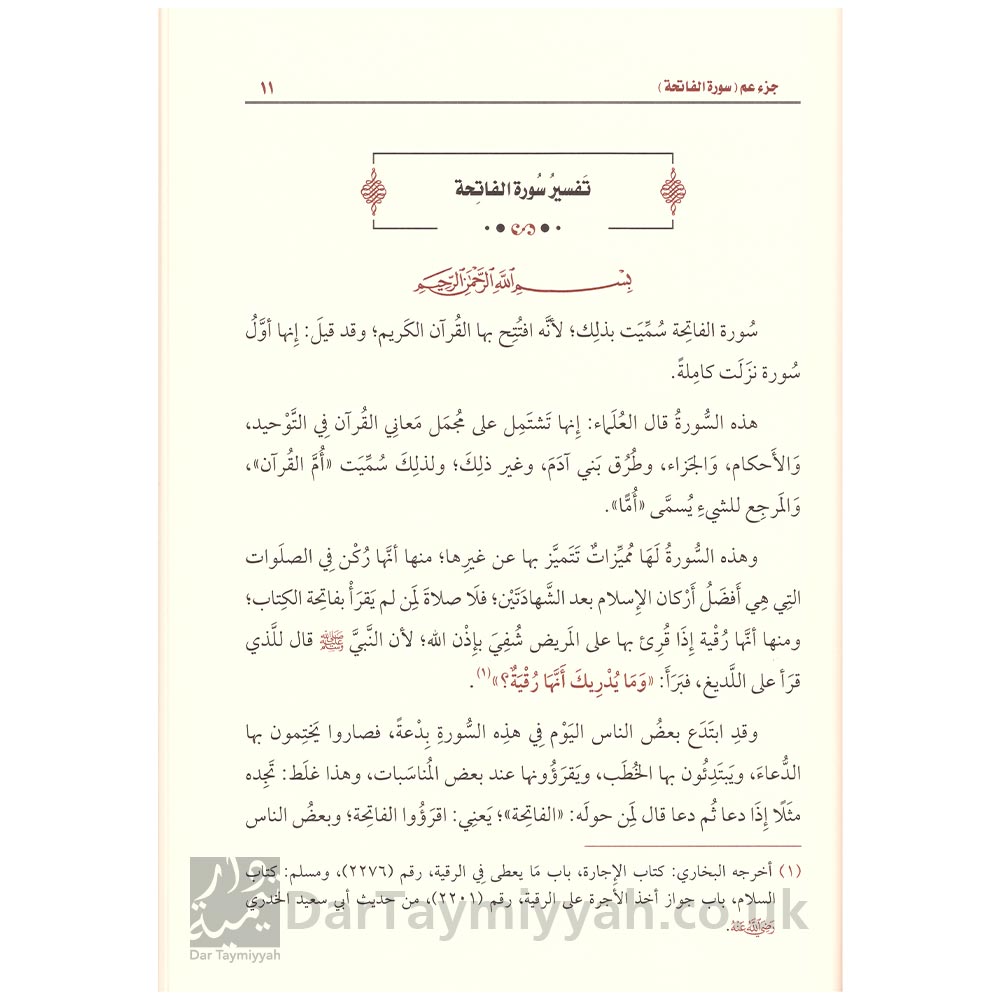 جزء عم (سورة الفاتحة)
١١
تَفسيرُ سُورة الفاتِحة
بِسْمِ اللَّهِ الرَّحْمَٰنِ الرَّحِيمِ
سُورة الفاتِحة سُمِّيَت بذلِك؛ لأنَّه افتُتِح بها القُرآن الكَريم؛ وقد قيلَ: إنها أوَّلُ
سُورة نزَلَت كامِلةً.
هذه السُّورةُ قال العُلَماء: إنها تَشتَمِل على مُجمَل مَعانِي القُرآن فِي التَّوْحيد،
وَالأَحكام، وَالجَزاء، وطُرُق بَني آدَمَ، وغير ذلِكَ؛ ولذلِكَ سُمِّيَت «أُمَّ القُرآن»،
وَالمَرجِع للشيءِ يُسمَّى «أُمًّا».
وهذه السُّورةُ لَهَا مُميِّزاتٌ تَتَميَّز بها عن غيرِها؛ منها أنَّها رُكْن فِي الصلَوات
التِي هِي أَفضَلُ أَرْكان الإِسلام بعد الشَّهادَتَيْن؛ فلَا صلاةَ لِمَن لم يَقرَأْ بفاتِحة الكِتاب؛
ومنها أنَّها رُقْية إِذَا قُرِئ بها على المَريض شُفِيَ بإِذْن الله؛ لأن النَّبيَّ ﷺ قال للَّذي
قرَأ على اللَّديغ، فبَرَأَ: «وَمَا يُدْرِيكَ أَنَّهَا رُقْيَةٌ؟»(١).
وقدِ ابتَدَع بعضُ الناس اليَوْم فِي هذِه السُّورةِ بِدْعةً، فصاروا يَختِمون بها
الدُّعاءَ، ويَبتَدِئُون بها الخُطَب، ويَقرَؤُونها عند بعض المُناسَبات، وهذا غلَط: تَجِده
مثَلًا إِذَا دعا ثُم دعا قال لِمَن حولَه: «الفاتِحة»؛ يَعنِي: اقرَؤُوا الفاتِحة؛ وبعضُ الناس
(١) أخرجه البخاري: كتاب الإجارة، باب مَا يعطى فِي الرقية، رقم (٢٢٧٦)، ومسلم: كتاب
السلام، باب جواز أخذ الأجرة على الرقية، رقم (٢٢٠١)، من حديث أبي سعيد الخدري
رَضِيَ اللَّهُ عَنْهُ.
دار تيمية
Dar Taymiyyah
DarTaymiyyah.co.uk